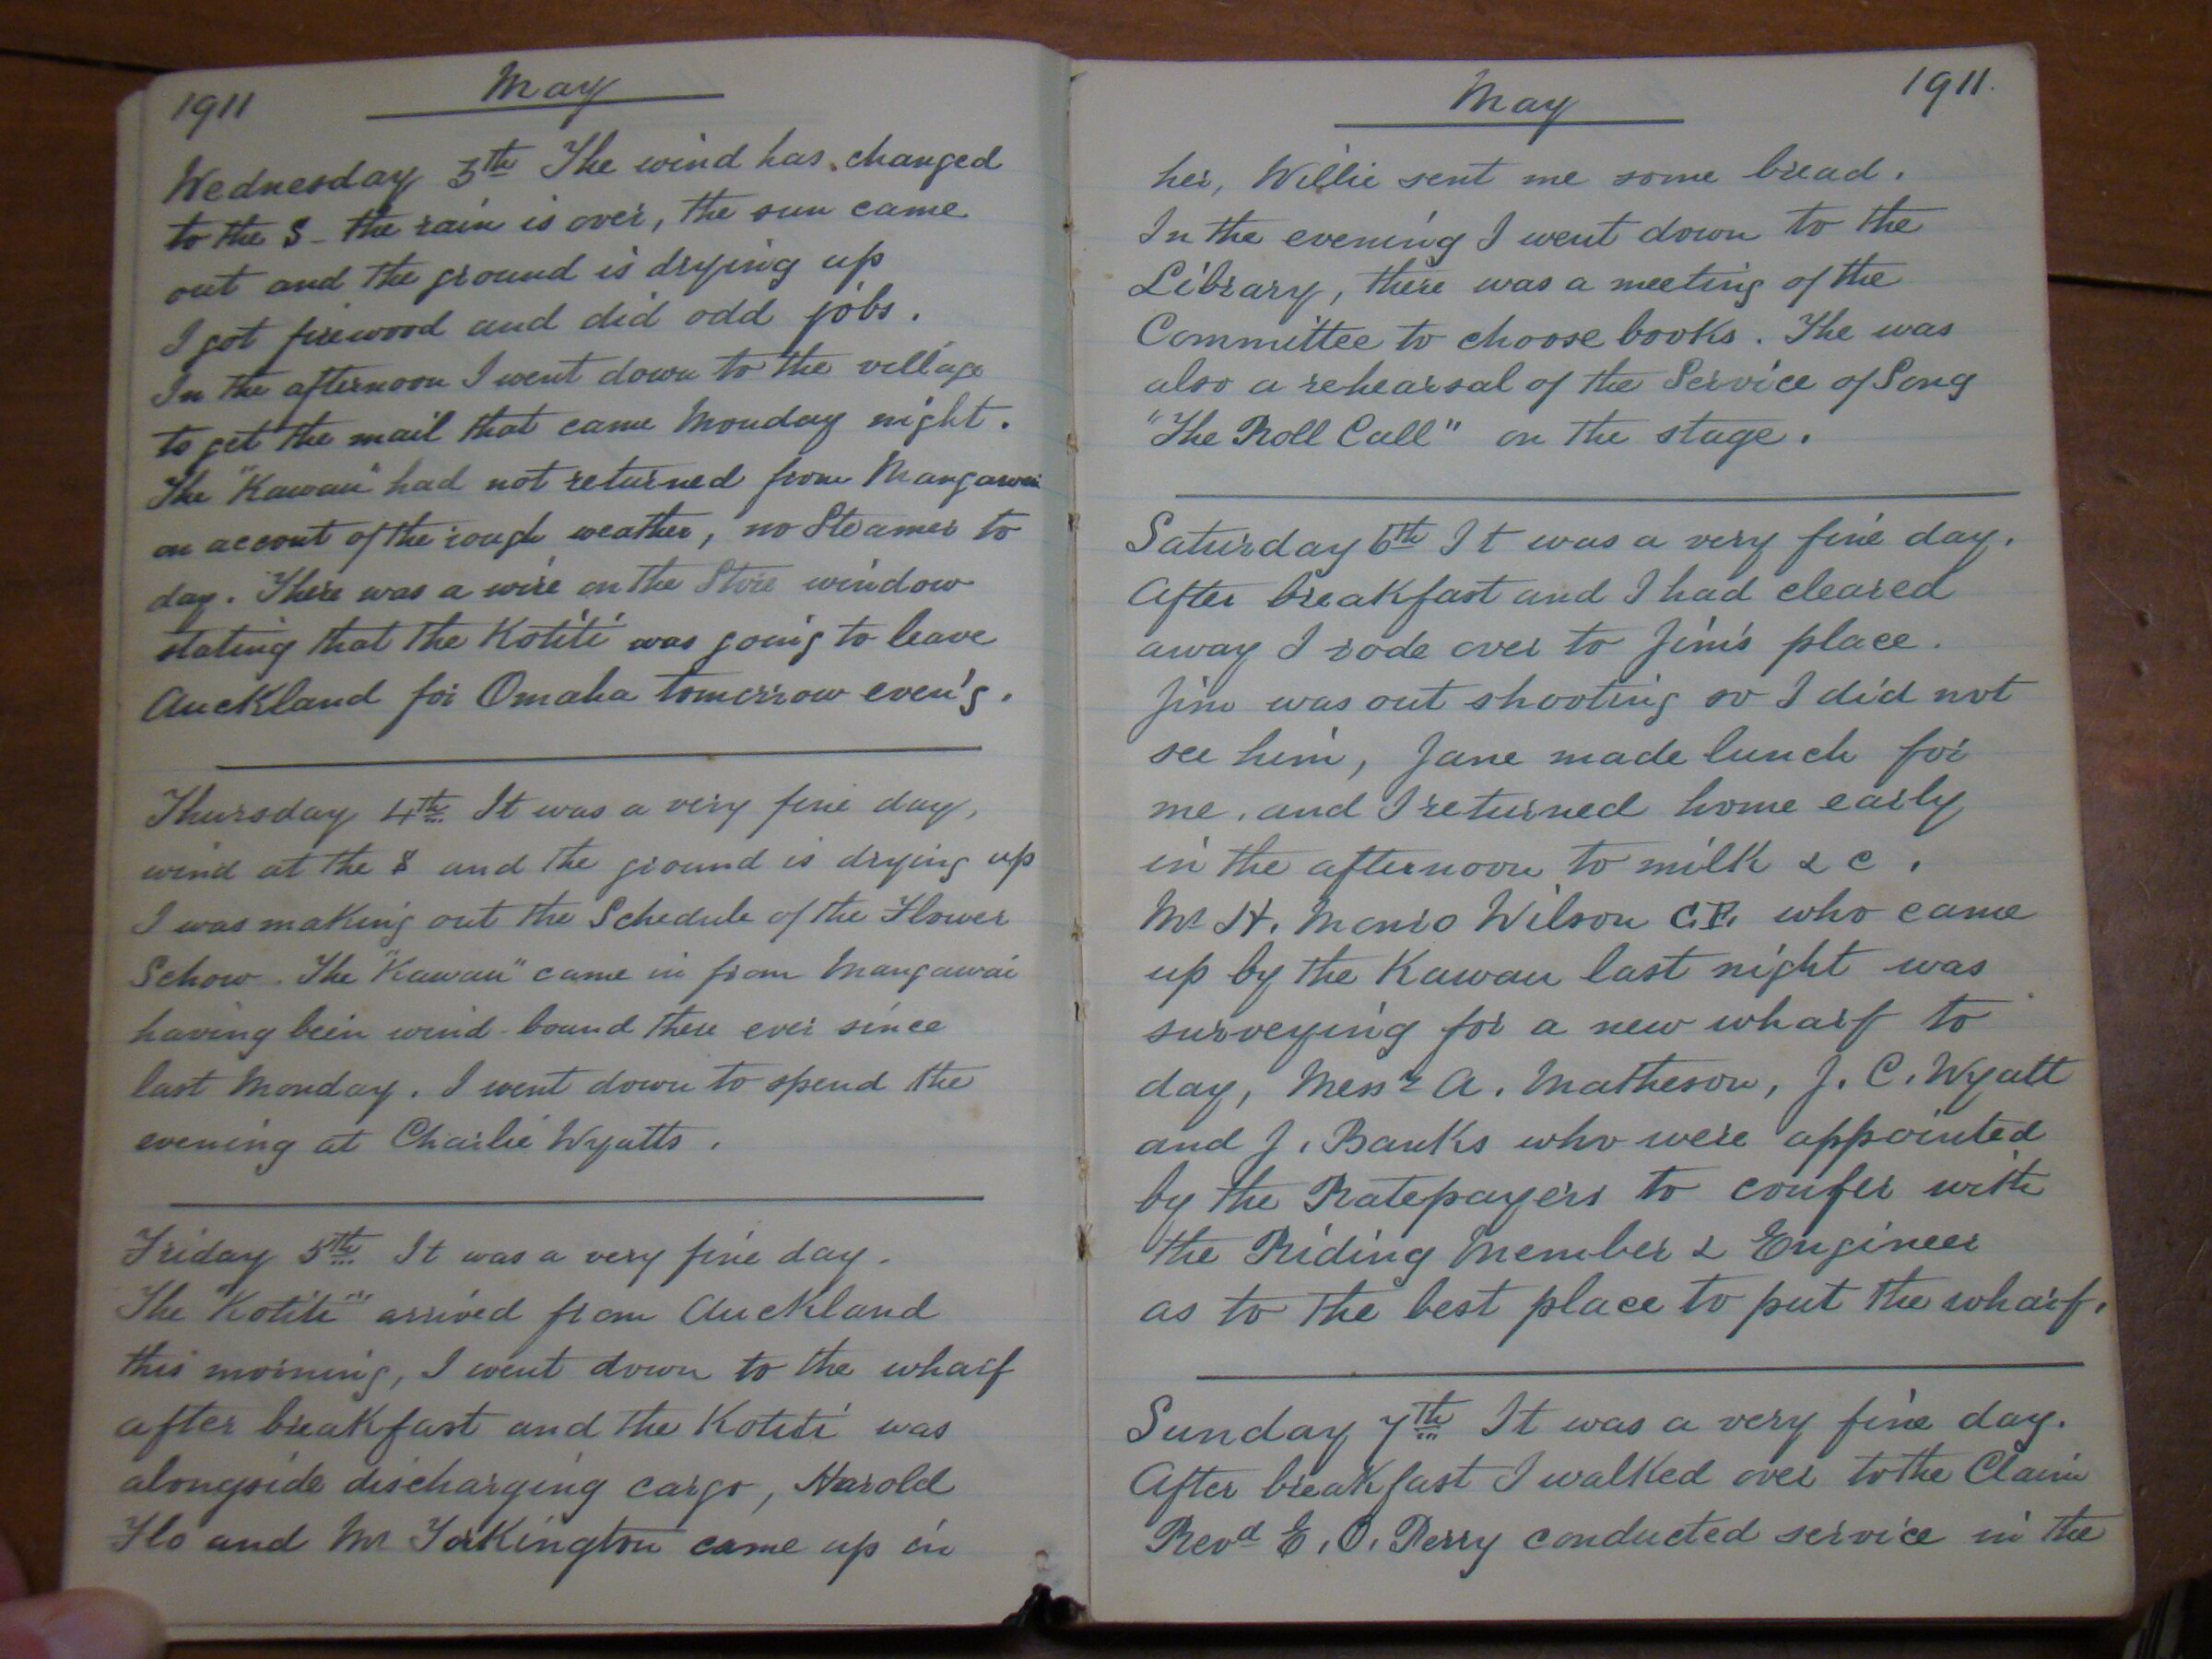 1911 May
Wednesday 3th The wind has changed
to the S - the rain is over, the sun came
out and the ground is drying up
I got firewood and did odd jobs.
In the afternoon I went down to the village
to get the mail that came Monday night.
The "Kawau" had not returned from Mangawai
on accont of the rough weather, no Steamer to
day. There was a wire on the Store window
stating that the Kotiti was going to leave
Auckland for Omaha tomorrow even'g.
Thursday 4th It was a very fine day,
wind at the S and the ground is drying up
I was making out the Schedule of the Flower
Schow. The "Kawau" came in from Mangawai
having been wind-bound there ever since
last Monday. I went down to spend the
evening at Charlie Wyatts.
Friday 5th It was a very fine day.
The "Kotiti" arrived from Auckland
this morning, I went down to the wharf
after breakfast and the Kotiti was
alongside discharging cargo, Harold
Flo and Mr Torkington came up in
May 1911.
her, Willie sent me some bread.
In the evening I went down to the
Library, there was a meeting of the
Committee to choose books. The was
also a rehearsal of the Service of Song
"The Roll Call" on the stage.
Saturday 6th It was a very fine day.
After breakfast and I had cleared
away I rode over to Jim's place.
Jim was out shooting so I did not
see him, Jane made lunch for
me, and I returned home early
in the afternoon to milk & c.
Mr H. Monro Wilson C.E. who came
up by the Kawau last night was
surveying for a new wharf to
day, Messrs A. Matheson, J. C. Wyatt
and J. Banks who were appointed
by the Ratepayers to confer with
the Riding Member & Engineer
as to the best place to put the wharf.
Sunday 7th It was a very fine day.
After breakfast I walked over to the Claim
Revd E. O. Perry conducted service in the